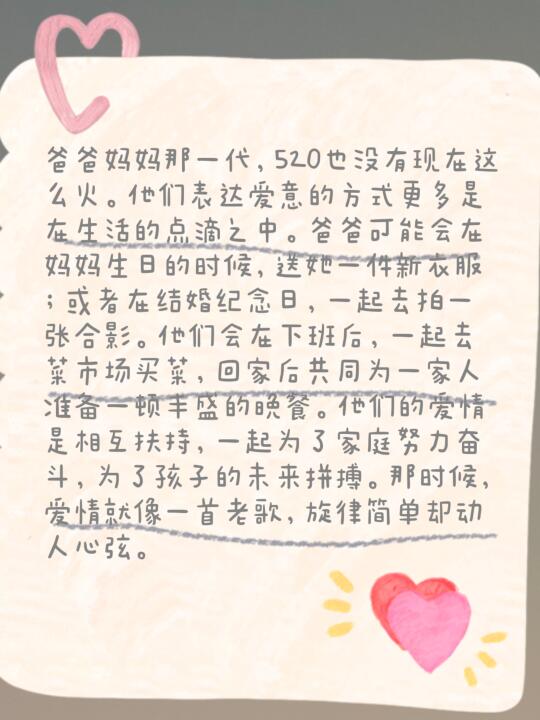 爸爸妈妈那一代，520也没有现在这
么火。他们表达爱意的方式更多是
在生活的点滴之中。爸爸可能会在
妈妈生日的时候，送她一件新衣服
；或者在结婚纪念日，一起去拍一
张合影。他们会在下班后，一起去
菜市场买菜，回家后共同为一家人
准备一顿丰盛的晚餐。他们的爱情
是相互扶持，一起为了家庭努力奋
斗，为了孩子的未来拼搏。那时候，
爱情就像一首老歌，旋律简单却动
人心弦。